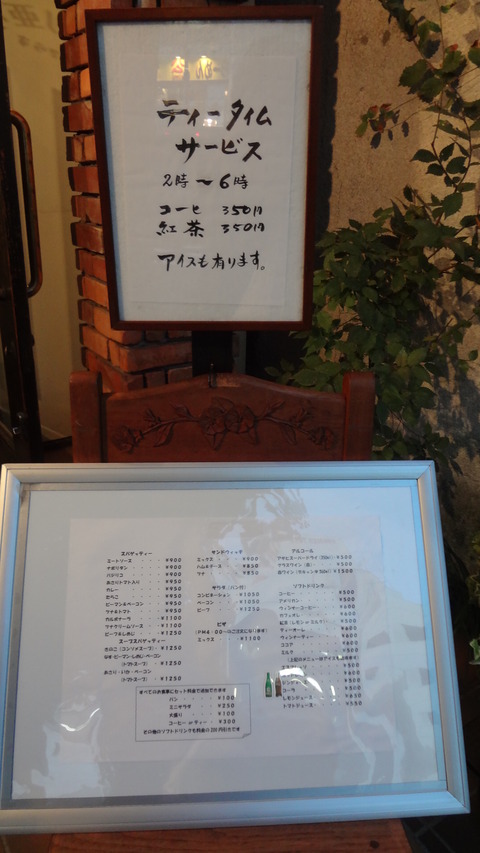 ティータイム
サービス
2時〜6時
コーヒ 350円
紅茶 350円
アイスも有ります。
スパゲッティー
ミートソース ¥900
ナポリタン ¥900
バジリコ ¥900
¥950
カレー ¥950
たらこ ¥950
ピーマン&ベーコン ¥950
ツナ&トマト ¥950
カルボナーラ ¥1100
ツナクリームソース ¥1100
ビーフ&しめじ ¥1250
スープスパゲッティー
きのこ(コンソメスープ) ¥1250
なす・ピーマン・しめじ・ベーコン
(トマトスープ) ¥1250
あさり・いか・ベーコン
(トマトスープ) ¥1250
サンドウィッチ
ミックス ¥900
ハム&チーズ ¥850
ツナ ¥850
サラダ(パン付)
コンビネーション ¥1050
ベーコン ¥1250
ビーフ ¥1250
ピザ
ミックス ¥1100
アルコール
アサヒスーパードライ ¥500
グラスワイン ¥500
¥1500
ソフトドリンク
コーヒー ¥500
アメリカン ¥500
ウィンナーコーヒー ¥600
カフェオレ ¥600
紅茶(レモン or ミルク) ¥500
ティーオーレ ¥600
ウィンナーティー ¥600
ココア ¥600
ミルク ¥500
コーラ ¥500
レモンジュース ¥650
トマトジュース ¥550
すべてのお食事にセット料金で追加できます
パン ¥100
ミニサラダ ¥250
大盛り ¥100
コーヒー orティー ¥300
その他のソフトドリンクも料金の200円引きです